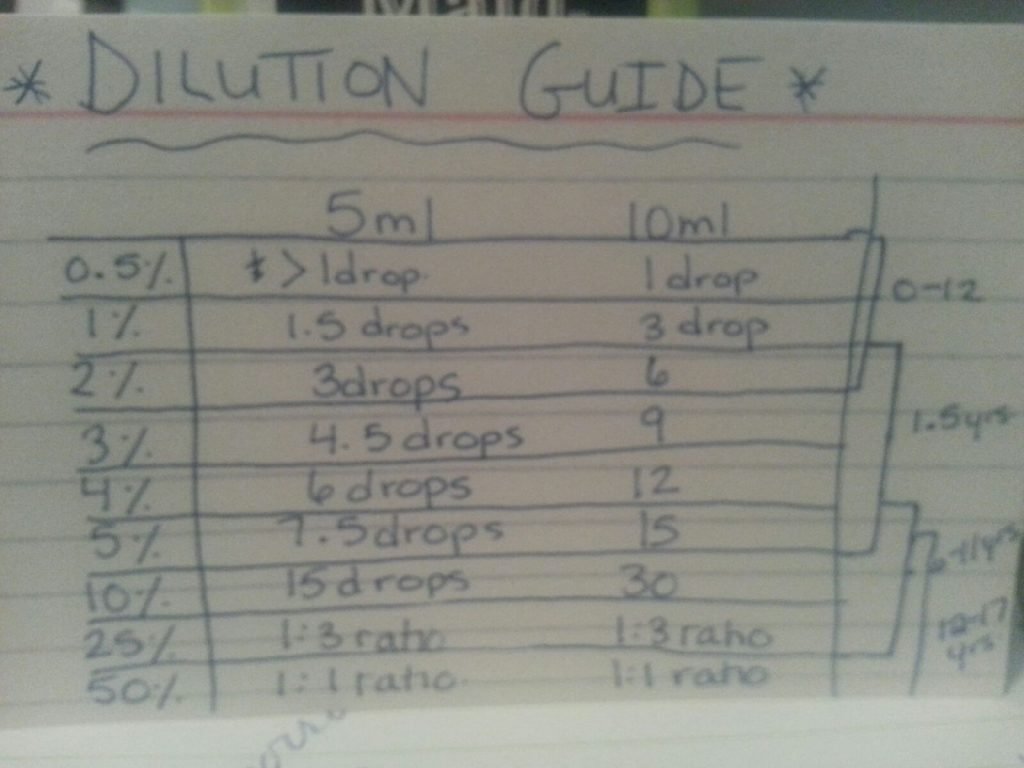 * DILUTION GUIDE *
5ml 10ml
0.5% * >1drop 1 drop 0-12
1% 1.5 drops 3 drop
2% 3drops 6
1.5yrs
3% 4.5 drops 9
4% 6 drops 12
5% 7.5drops 15
6-11yrs
10% 15drops 30
25% 1:3 ratio 1:3 ratio 12-17
yrs
50% 1:1 ratio 1:1 ratio